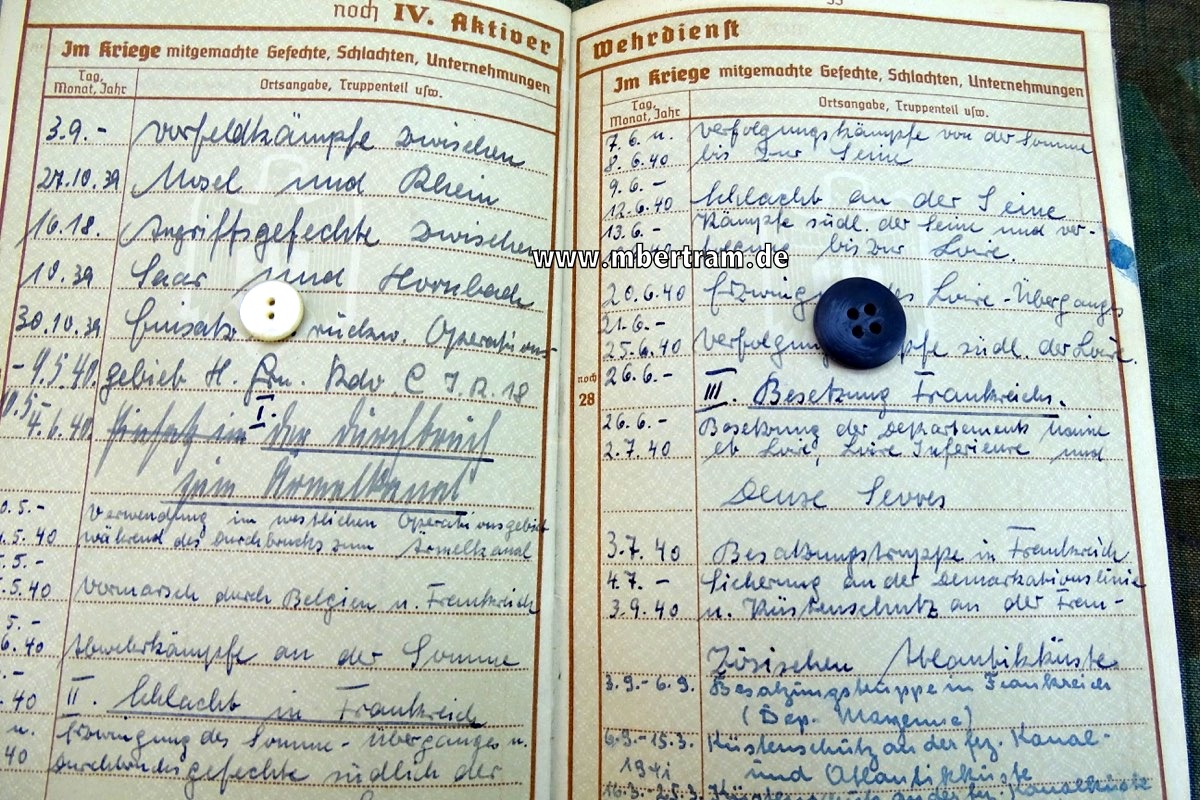 noch IV. Aktiver
Im Kriege mitgemachte Gefechte, Schlachten, Unternehmungen
Tag, Monat, Jahr
Ortsangabe, Truppenteil usw.
3.9.- Vorfeldkämpfe zwischen
27.10.39 Mosel und Rhein
16.18. Angriffsgefechte zwischen
10.39 Saar und Hornbach
30.10.39 Einsatz rückw. Operations-
-9.5.40. gebiet H. Gru. Kdo C I.R. 18
4.6.40 Einsatz im I. der Durchbruch
zum Ärmelkanal
0.5.- Verwendung im westlichen Operationsgebiet
.5.40 während des Durchbruchs zum Ärmelkanal
.5.-
.5.40 Vormarsch durch Belgien u. Frankreich
5.-
6.40 Abwehrkämpfe an der Somme
.-
.40 II. Schlacht in Frankreich
u. Erzwingung des Somme-Überganges u.
40 Durchbruchsgefechte südlich der
Wehrdienst
Im Kriege mitgemachte Gefechte, Schlachten, Unternehmungen
Tag, Monat, Jahr
Ortsangabe, Truppenteil usw.
7.6. u. Verfolgungskämpfe von der Somme
8.6.40 bis zur Seine
9.6.-
12.6.40 Schlacht an der Seine
13.6.- Kämpfe südl. der Seine und ver-
bis zur Loire.
20.6.40 Erzwing des Loire-Übergangs
21.6.-
25.6.40 Verfolgung südl. der Loire.
noch
28
26.6.- III. Besetzung Frankreichs.
26.6.- Besetzung der Departements Maine
2.7.40 et Loire, Loire Inferieure und
Deuxe Sevres
3.7.40 Besatzungstruppe in Frankreich
4.7.- Sicherung an der Demarkationslinie
3.9.40 u. Küstenschutz an der Fran-
zösischen Atlantikküste
3.9.-6.9. Besatzungstruppe in Frankreich
(Dep. Mayenne)
6.9.-15.3. Küstenschutz an der frz. Kanal-
1941 und Atlantikküste
16.3.-25.3. Küstenschutz an der frz. Kanalküste
www.mbertram.de